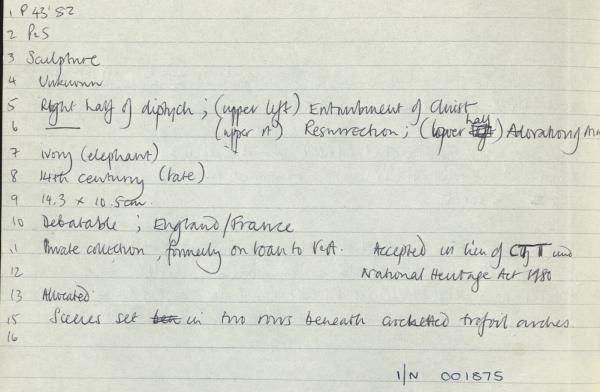 1 P 43'82
2 P25
3 Sculpture
4 Unknown
5 Right half of diptych ; (upper left) Entombment of Christ
6 (upper rt) Resurrection ; (lower half) Adoration of
7 ivory (elephant)
8 14th century (late)
9 14.3 x 10.5cm.
10 Debatable ; England/France
11 Private collection, formerly on loan to V&A. Accepted in lieu of CTT
12 National Heritage Act 1980
13 Allocated
15 Scenes set in two rows beneath trefoil arches.
16
I/N 001875